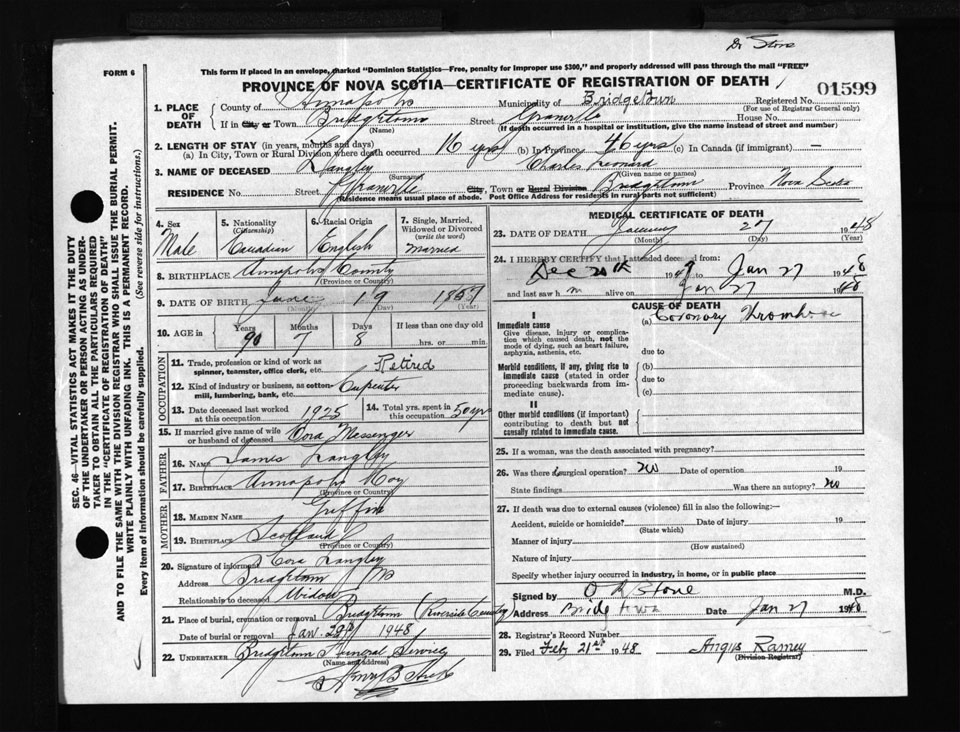 Dr Stone
FORM 6
This form if placed in an envelope, marked "Dominion Statistics—Free, penalty for improper use $300," and properly addressed will pass through the mail "FREE"
PROVINCE OF NOVA SCOTIA—CERTIFICATE OF REGISTRATION OF DEATH
01599
1. PLACE OF DEATH
County of Annapolis Municipality of Bridgetown Registered No.
(For use of Registrar General only)
If in City or Town Bridgetown Street Granville House No.
(Name) (If death occurred in a hospital or institution, give the name instead of street and number)
2. LENGTH OF STAY (in years, months and days)
(a) In City, Town or Rural Division where death occurred 16 yrs (b) In Province 46 yrs (c) In Canada (if immigrant) —
3. NAME OF DECEASED Langley Charles Leonard
(Surname) (Given name or names)
RESIDENCE No. Street Granville City, Town or Rural Division Bridgetown Province Nova Scotia
(Residence means usual place of abode. Post Office Address for residents in rural parts not sufficient)
4. Sex 5. Nationality (Citizenship) 6. Racial Origin 7. Single, Married, Widowed or Divorced (write the word)
Male Canadian English Married
8. BIRTHPLACE Annapolis County
(Province or Country)
9. DATE OF BIRTH June 19 1857
(Month) (Day) (Year)
10. AGE in Years Months Days If less than one day old
90 7 8 hrs. or min.
OCCUPATION
11. Trade, profession or kind of work as spinner, teamster, office clerk, etc. Retired
12. Kind of industry or business, as cotton-mill, lumbering, bank, etc. Carpenter
13. Date deceased last worked at this occupation 1925 14. Total yrs. spent in this occupation 50 yrs
15. If married give name of wife or husband of deceased Cora Messenger
FATHER
16. NAME James Langley
17. BIRTHPLACE Annapolis Coy
(Province or Country)
MOTHER
18. MAIDEN NAME Griffin
19. BIRTHPLACE Scotland
(Province or Country)
20. Signature of informant Cora Langley
Address Bridgetown NS
Relationship to deceased Widow
21. Place of burial, cremation or removal Bridgetown (Riverside Cemetery)
Date of burial or removal Jan 29th 1948
22. UNDERTAKER Bridgetown Funeral Service
(Name and address)
MEDICAL CERTIFICATE OF DEATH
23. DATE OF DEATH January 27 1948
(Month) (Day) (Year)
24. I HEREBY CERTIFY that I attended deceased from:
Dec 20th 1949 to Jan 27 1948
and last saw h m alive on Jan 27 1948
CAUSE OF DEATH
I
Immediate cause
Give disease, injury or complication which caused death, not the mode of dying, such as heart failure, asphyxia, asthenia, etc.
(a) Coronary Thrombosis
due to
Morbid conditions, if any, giving rise to immediate cause (stated in order proceeding backwards from immediate cause).
(b)
due to
(c)
II
Other morbid conditions (if important) contributing to death but not causally related to immediate cause.
25. If a woman, was the death associated with pregnancy?
26. Was there surgical operation? No Date of operation 19
State findings Was there an autopsy? No
27. If death was due to external causes (violence) fill in also the following:—
Accident, suicide or homicide? Date of injury 19
(State which)
Manner of injury
(How sustained)
Nature of injury
Specify whether injury occurred in industry, in home, or in public place
Signed by O R Stone M.D.
Address Bridgetown Date Jan 27 1948
28. Registrar's Record Number
29. Filed Feb 21st 1948 Angus Ramey
(Division Registrar)
SEC. 46—VITAL STATISTICS ACT MAKES IT THE DUTY
OF THE UNDERTAKER OR PERSON ACTING AS UNDER-
TAKER TO OBTAIN ALL THE PARTICULARS REQUIRED
IN THE "CERTIFICATE OF REGISTRATION OF DEATH"
AND TO FILE THE SAME WITH THE DIVISION REGISTRAR WHO SHALL ISSUE THE BURIAL PERMIT.
WRITE PLAINLY WITH UNFADING INK. THIS IS A PERMANENT RECORD.
Every item of information should be carefully supplied. (See reverse side for instructions.)